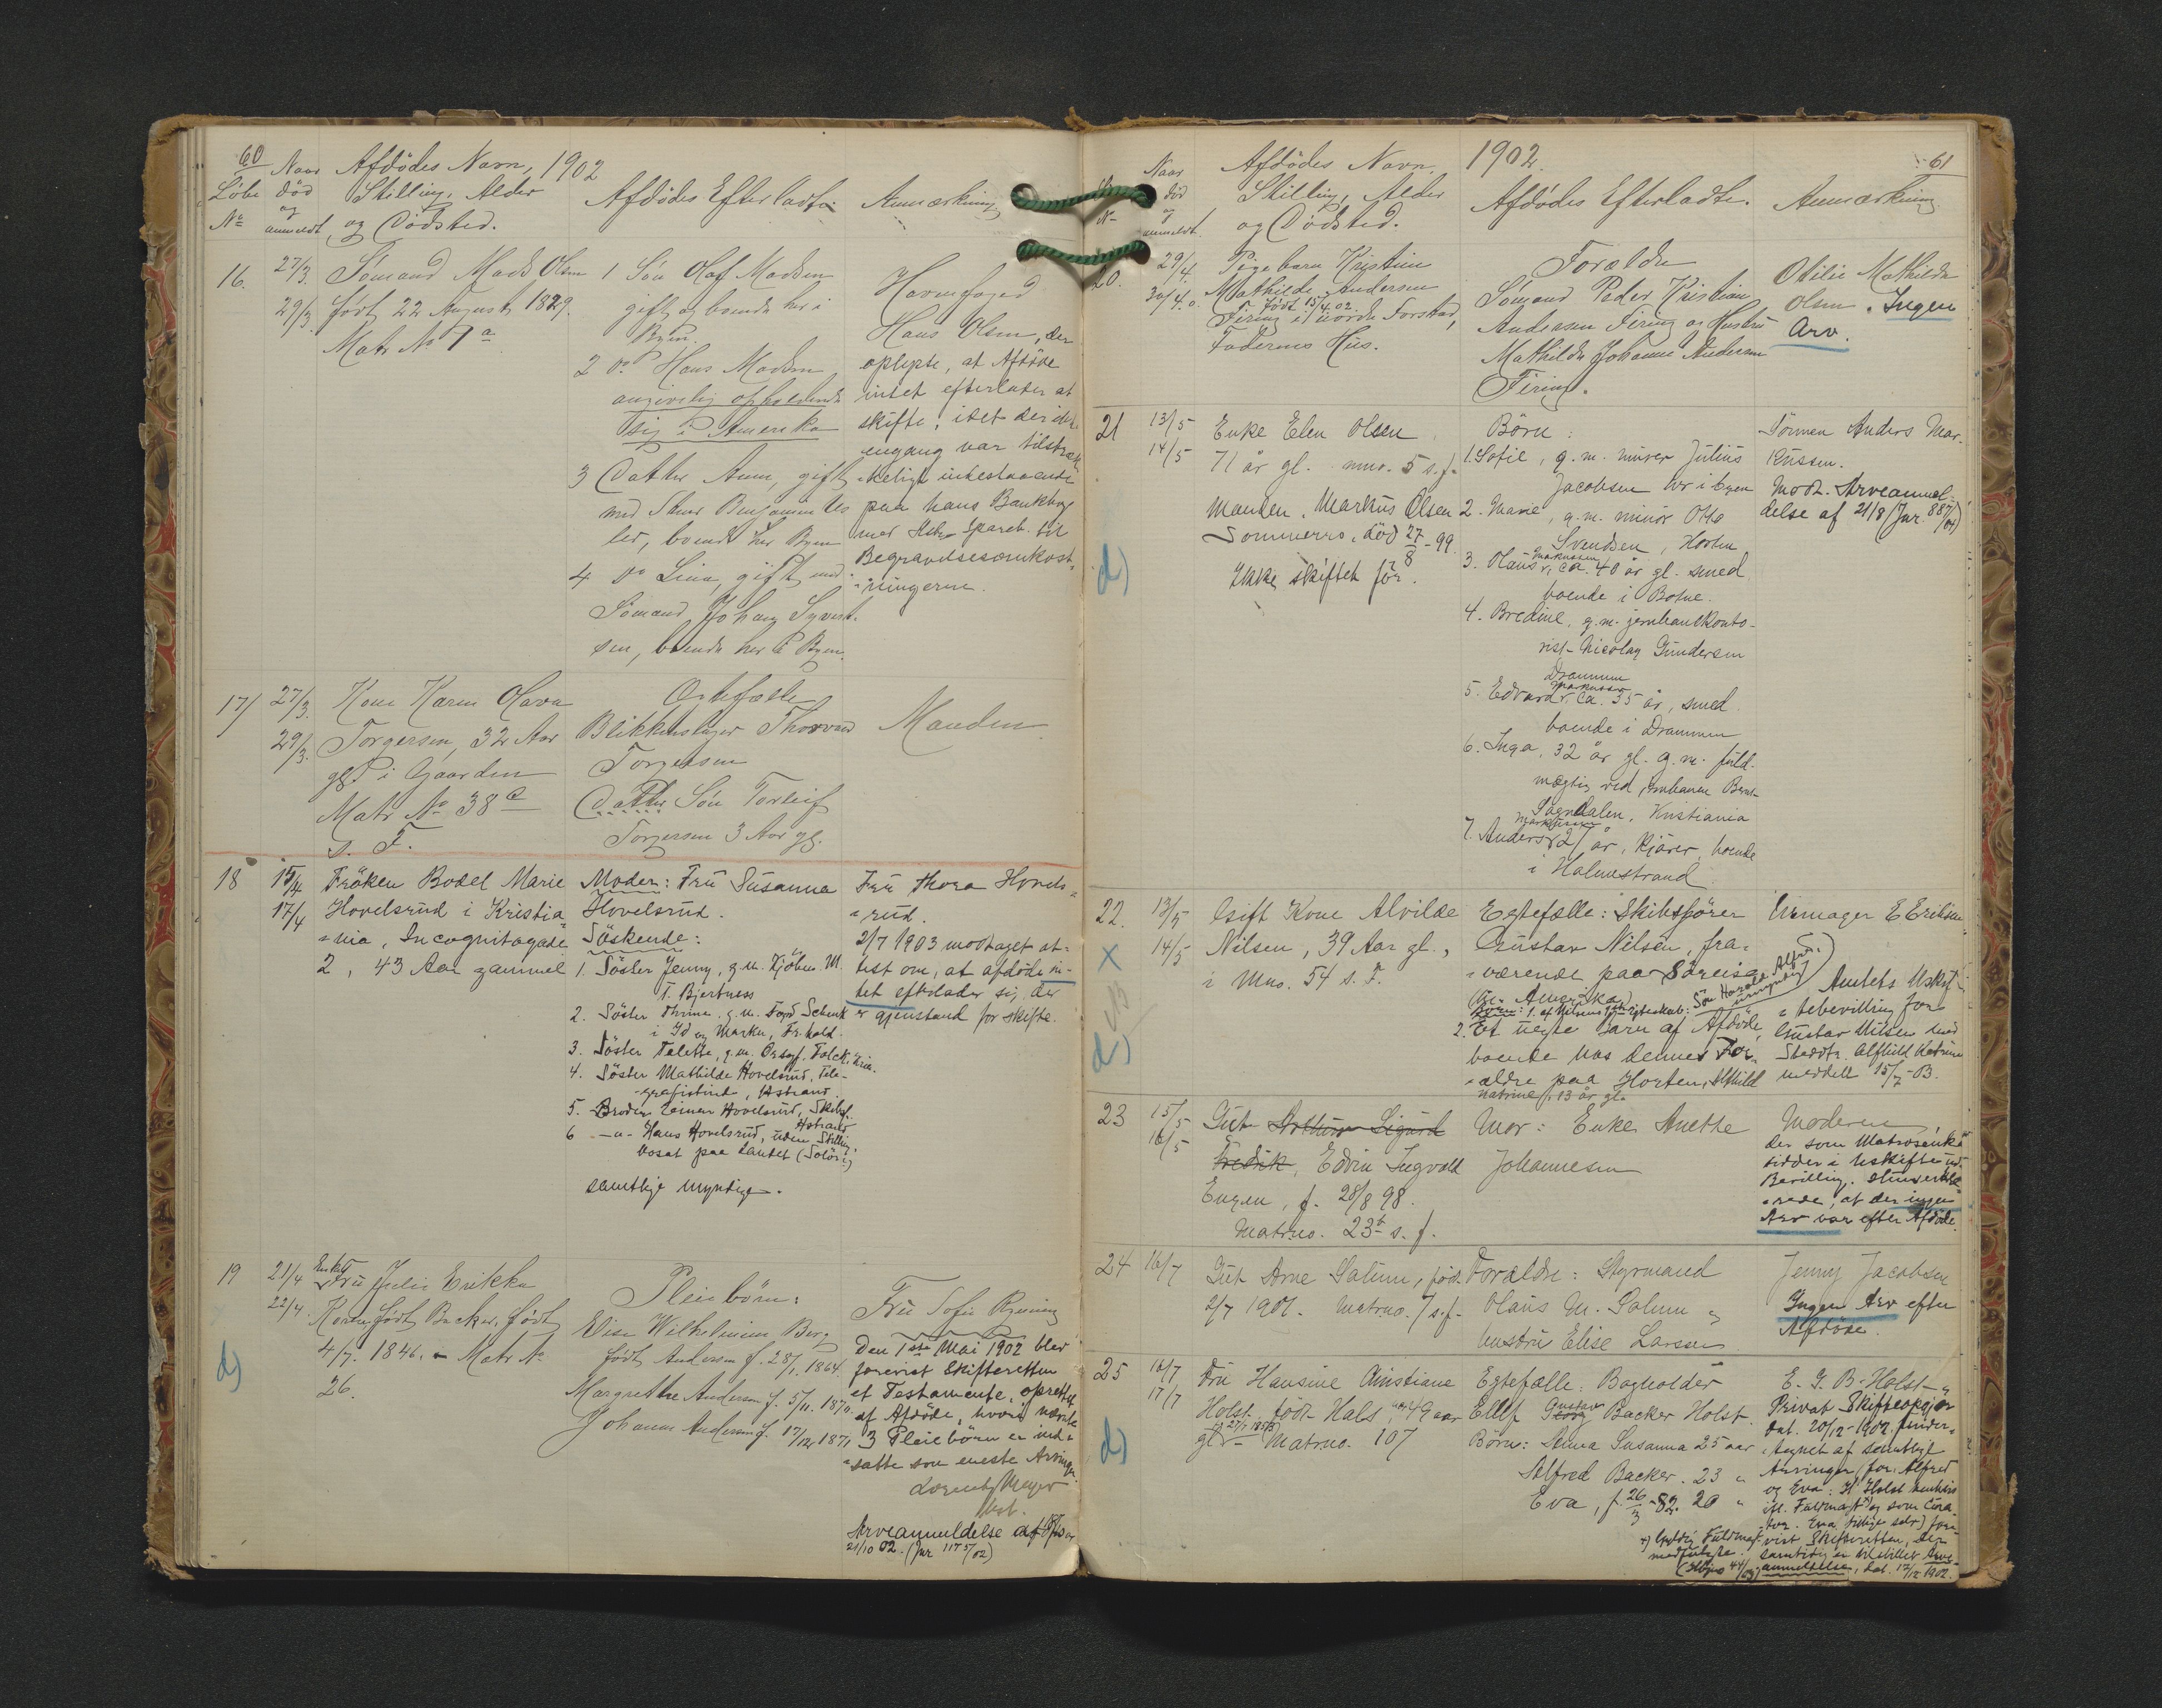 60
1902
Löbe No
Naar död og anmeldt
Afdödes Navn,
Stilling, Alder
og Dödsted.
Afdödes Efterladte
Anmærkning
16.
27/3.
29/3.
Sömand Mads Olsen
født 22 August 1829.
Matr No 7 a
1 Sön Olaf Madsen
gift og boende her i
Byen.
2 do Hans Madsen
angivelig opholdende
sig i Amerika
3 Datter Anne, gift
med
ler, boende her Byen
4 do Lina, gift med
Sömand Johan Syvert-
sen, boende her i Byen.
Havnefoged
Hans Olsen, der
oplyste, at Afdöde
intet efterlader at
skifte, idet der ikke
engang var tilstræk
keligt indestaaende
paa hans Bankbog
med Hstrs Spareb. til
Begravelsesomkost-
ningerne.
17/
27/3.
29/3.
Kone Karen Olava
Torgersen, 32 Aar
gl i Gaarden
Matr No 38 c
s. F.
Ægtefælle
Blikkenslager Thorvald
Torgersen
Datter Sön Torleif
Torgersen 3 Aar gl.
Manden
18
15/4
17/4
Fröken Bodel Marie
Hovelsrud i Kristia
nia, Incognitogade
2, 43 Aar gammel
Moder: Fru Susanna
Hovelsrud.
Söskende:
1. Söster Jenny, g.m. Kjöbm. M.
T. Bjertness
2. Söster Thrine. g.m. Fogd Schenk
i Id og Marker, Fr.hald.
3. Söster Valette, g.m. Falck, Kria.
4. Söster Mathilde Hovelsrud, Tele-
grafistinde, Hstrand.
5. Broder Einar Hovelsrud, Skibsf.
Hstrand
6 -"- Hans Hovelsrud, uden Stilling,
bosat paa Landet (Solör)
samtlige myndige.
Fru Thora Hovels-
rud.
2/7 1903 modtaget at-
test om, at afdöde in-
tet efterlader sig, der
er gjenstand for skifte.
19
21/4
22/4.
d)
Enkefru Julie Erikka
Koren födt Backer, født
4/7. 1846. - Matr No
26.
Pleiebörn:
Elise Wilhelmine Berg
født Andersen f. 28/1. 1864
Margrethe Andersen f. 5/11. 1870.
Johanne Andersen f. 17/12 1871
Fru Sofie Ryning
Den 1ste Mai 1902 blev
forevist Skifteretten
et Testamente, oprettet
af Afdöde, hvori nævnte
3 Pleiebörn er ind-
satte som eneste Arvinger.
Lorentz Meyer
Arveanmeldelse af
21/10 02. (Jnr 1175/02)
61
1902.
Naar död og anmeldt.
Afdödes Navn,
Stilling, Alder
og Dödsted.
Afdödes Efterladte.
Anmærkning.
20.
29/4.
30/4.
Pigebarn Kristine
Mathilde Andersen
Firing, født 15/4 02. i nordre Forstad,
Faderens Hus.
Forældre
Sömand Peder Kristian
Andersen Firing og Hustru
Mathilde Johanne Andersen
Firing.
Otilie Mathilde
Olsen. Ingen
Arv.
21
13/5
14/5
d)
Enke Elen Olsen,
71 år gl. mno. 5 s. f.
Manden, Markus Olsen
Sommerro, död 27/8 - 99.
Ikke skiftet för.
Börn:
1. Sofie, g.m. murer Julius
Jacobsen her i byen
2. Marie, g.m. minör Otto
Svendsen, Horten
3. Olaus Markussen, ca. 40 år gl. smed
boende i Botne.
4. Bredine, g.m. jernbanekonto-
rist Nicolay Gundersen
Drammen
5. Edvard Markussen ca. 35 år, smed
boende i Drammen
6. Inga, 32 år gl. g.m. fuld-
mægtig ved jernbanen Bernt
Sogndalen, Kristiania
7. Anders Markussen 27 år, kjörer, boende
i Holmestrand.
Sönnen Anders Mar-
kussen.
Modt. Arveanmel-
delse af 21/8 (Jnr. 887/02)
22.
13/5
14/5
x
d)
Gift Kone Alvilde
Nilsen, 39 Aar gl.,
i Mno. 54 s. F.
Egtefælle: Skibsförer
Gustav Nilsen, fra-
værende paa Söreise
Amerika)
Sön Harald Alfr.
umyndig)
2. Et uegte Barn af Afdöde,
boende hos dennes For-
ældre paa Horten, Alfhild
Katrine, 13 år gl.
Urmager E Eriksen
Amtets Uskif-
tebevilling for
Gustav Nilsen med
Steddtr. Alfhild Katrine
meddelt 15/7-03.
23
15/5
16/5
Gut Arthur Sigurd
Fredrik, Edvin Ingvald
Eugen, f. 28/8 98.
Matrno. 23 b s. f.
Mor: Enke Anethe
Johannesen
Moderen,
der som Matrosenke
sidder i Uskifte ud.
Bevilling.
at der ingen
Arv var efter Afdöde.
24
16/7
Gut Arne Salum, född
2/7 1901. Matrno. 7 s.f.
Forældre: Styrmand
Olaus M. Salum &
hustru Elise Larssen
Jenny Jacobsen
Ingen Arv efter
Afdöde.
25
16/7
17/7
d)
Fru Hansine Christiane
Holst, födt Hals, 49 aar
gl. - Matrno. 107
Egtefælle: Bogholder
Ellef Gustav Backer Holst.
Börn: Anna Susanna 25 aar
Alfred Backer. 23 "
Eva, f. 26/3 - 82. 20 "
E. G. B. Holst
Privat Skifteopgjör
dat. 20/12 1902, under-
tegnet af samtlige
Arvinger (for Alfred
og Eva: H Holst
ifl. Fuldmagt x) og som Cura-
tor. Eva tillige selv) fore-
vist Skifteretten, der
samtidig er tilstillet Arve-
anmeldelse, dat. 17/12 1902.
x) Fuldmagt
medfulgte.